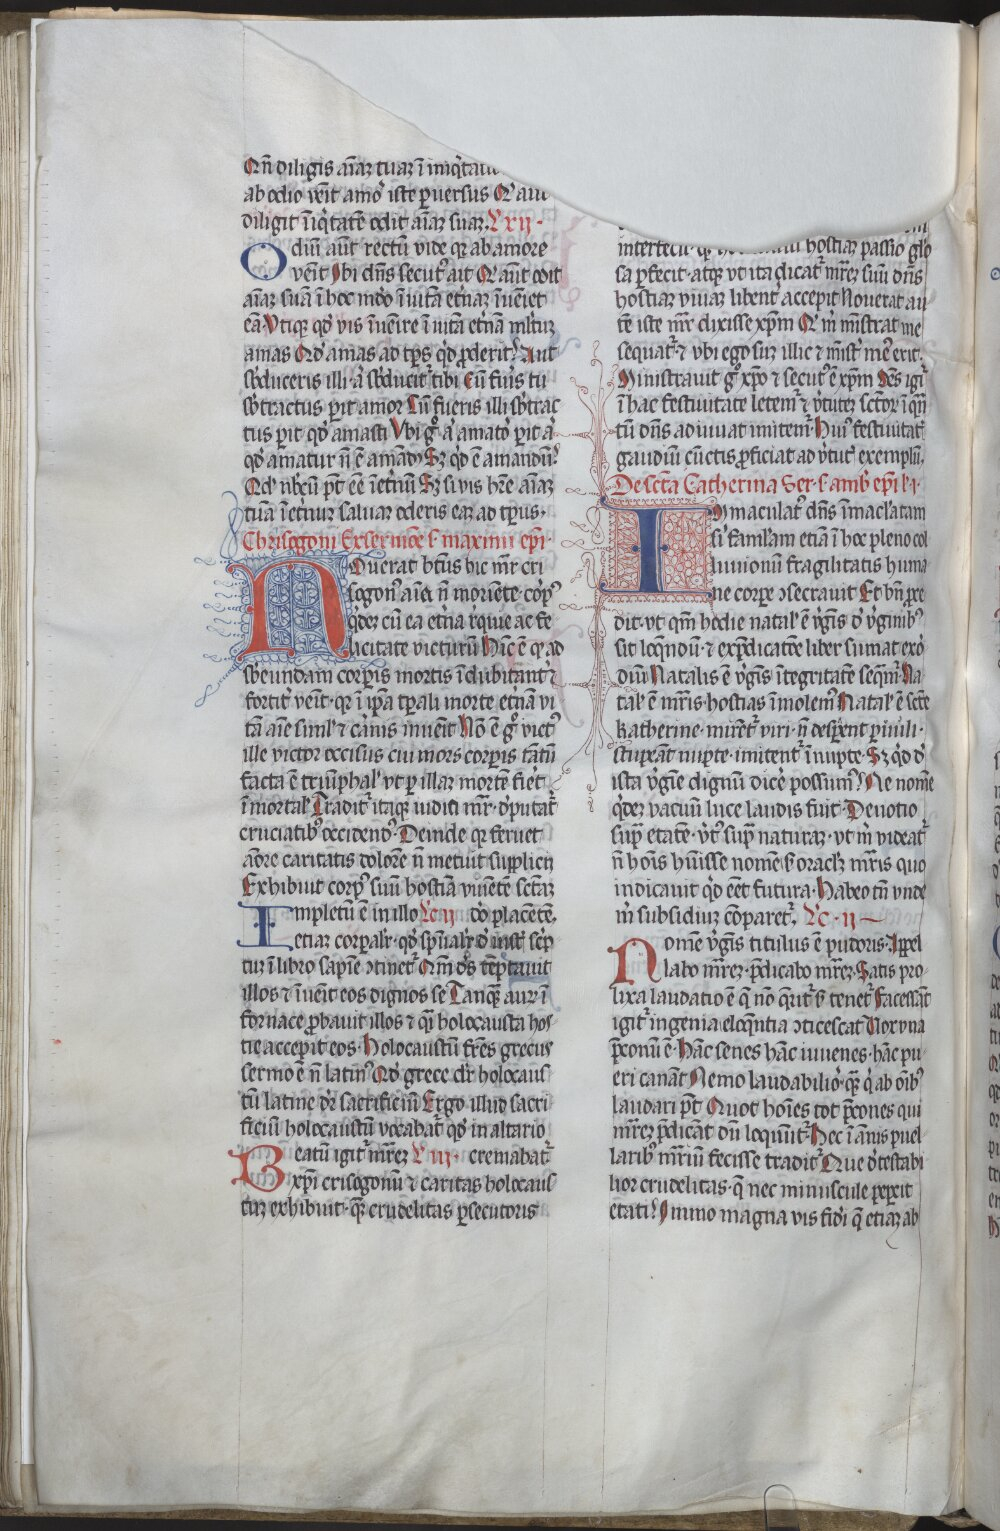 Qn̄ diligis aīaꝫ tuaꝫ ī iniq̇tate
ab odio veīt amoꝰ iste ꝑuersus Qͥ aut
diligit īiq̇tatē odit aīaꝫ suaꝫ. Lc̄ ij·
Odiū aūt rectū vide qꝫ ab amore
veīt Ibi dn̄s secutꝰ ait Qͥ aūt odit
aīaꝫ suā ī hoc mūdo ī vitā et̄naꝫ īueīet
eā Vtiqꝫ qd̓ vis īuēire ī vitā et̄nā ml̄tuꝫ
amas Qd̓ amas ad tp̄s qͥd ꝓderit? Aut
sb̓duceris illi aͭ sb̓ducit᷑ tibi Cū fu̓is tu
sb̓tractus ꝑit amor Cū fueris illi sb̓trac
tus ꝑit qd̓ amasti Vbi gͦ aͭ amatoꝛ ꝑit aͭ
qd̓ amatur n̄ ē amādū Sꝫ qd̓ ē amandū?
Qd̓ nb̓cū pt̄ eē īet̄nū Sꝫ si vis hr̄e aīaꝫ
tuā īet̄nuꝫ saluaꝫ oderis eaꝫ ad tp̄us·
Chrisogoni Ex sermōe s̄ maximi epī·
Nouerat btūs hic mr̄ cri
sogonꝰ aīā n̄ moriētē corpꝰ
qͥdeꝫ cū ea et̄na rͤquie ac fe
licitate victurū Hic ē qͥ ad
sb̓eundam corꝑis mortis ī dubitant᷑
fortit᷑ veīt· qꝫ ī ip̄a tp̄ali morte et̄nā vi
tā aīe siml̓ ⁊ carnis inuēit Nō ē gͦ victꝰ
ille victor occisus cui mors corꝑis tātū
facta ē triūphal̓ vt ꝑ illaꝫ mortē fiēt
īmortal̓ Tradit᷑ itaqꝫ iudici mr̄· dͤputat᷑
cruciatibꝰ occidendꝰ Deinde qꝫ feruet
amore caritatis dolorē n̄ metuit supplicij
Exhibuit corpꝰ suū hostiā viuētē sctāꝫ
Impletū ē in illo Lc̄ ij do̓ placētē,
etiaꝫ corꝑalr̄· qd̓ spūalr̄ dͤ iustꝰ scp̄
tuꝫ ī libro sapiē ꝯtinet᷑ Qm̄ ds̄ tēptauit
illos ⁊ īuēit eos dignos se Tanqꝫ auꝝ ī
fornace ꝓbauit illos ⁊ qͣi holocausta hos
tie accepit eos· Holocaustū fr̄es grecus
sermo ē n̄ latinꝰ Qd̓ grece dr̄ holocaus
tū latine dr̄ sacrificiū Ergo illud sacri
ficiū holocaustū vocabat᷑ qd̓ in altario
Beatū igit᷑ mr̄eꝫ L iij· cremabat᷑
xp̄i crisogonū ⁊ caritas holocaus
tuꝫ exhibuit· qꝫ crudelitas ꝑsecutoris
interfecit· hostiaꝫ passio glo
sa ꝑfecit· atqꝫ vt ita dicat᷑ mr̄eꝫ suū dn̄s
hostiaꝫ viuaꝫ libent᷑ accepit Nouerat au
tē iste mr̄ dixisse xp̄m Qͥ m̄ mīstrat me
sequat᷑· ⁊ vbi ego suꝫ illic ⁊ mīst᷑ meꝰ erit·
Ministrauit gͦ xp̄o ⁊ secutꝰ ē xp̄m Nos igit᷑
ī hac festiuitate letem᷑ ⁊ v̓tuteꝫ sctōꝝ ī qn̄
tū dn̄s adiuuat imitem᷑ Huiꝰ festiuitatꝭ
gaudiū cūctis ꝓficiat ad v̓tutꝭ exemplū,
De sctā Catherina Ser· s̄ amb̓ epī l̓ i·
Immaculatꝰ dn̄s īmacl̓atam
si faml̓am etiā ī hoc pleno col
luuionū fragilitatis huma
ne corꝑe ꝯsecrauit Et bn̄ ꝓce
dit· vt qm̄ hodie natal̓ ē v̓gīs dͤ v̓ginibꝰ
sit loqēndū· ⁊ ex p̄dicatōe liber sumat exor
diū Natalis ē v̓gīs ītegritatē seqm̄ Na
tal̓ ē mr̄is· hostias īmolem᷑ Natal̓ ē scte
katherine· mirēt᷑ viri· n̄ desꝑent ꝑuuli·
stupeāt nupte· imitent᷑ īnupte· Sꝫ qͥd dͤ
ista v̓gīe dignū dicē possum᷑? Ne nomē
qͥdeꝫ vacuū luce laudis fuit· Deuotio
supͣ etatē· v̓tꝰ supͣ naturaꝫ· vt m̄ videat᷑
n̄ hoīs huisse nomē· sꝫ oracl̓ mr̄is quo
indicauit qͥd eēt futura· Habeo tn̄ vnde
m̄ subsidiuꝫ cōparet᷑. Lc̄· ij—
Nomē v̓gīs titulus ē pudoris· Appel
labo mr̄eꝫ· p̄dicabo mr̄eꝫ· Satis pro-
lixa laudatio ē q̄ nō querit᷑ sꝫ tenet᷑ Facessat
igit᷑ ingenia eloq̄ntia ꝯticescat Vox vna
p̄coniū ē· Hāc senes hāc iuuenes· hāc pu-
eri canāt Nemo laudabilioꝛ· qͣꝫ qͥ ab oīb᷒
laudari pt̄ Quot hoīes tot p̄cones qui
mr̄eꝫ p̄dicāt dū loquūt᷑ Hec ī ānis puel
laribꝰ mr̄iū fecisse tradit᷑ Que dͤtestabi
lior crudelitas· q̄ nec minuscule peꝑcit
etati? Immo magna vis fidͤi q̄ etiaꝫ ab